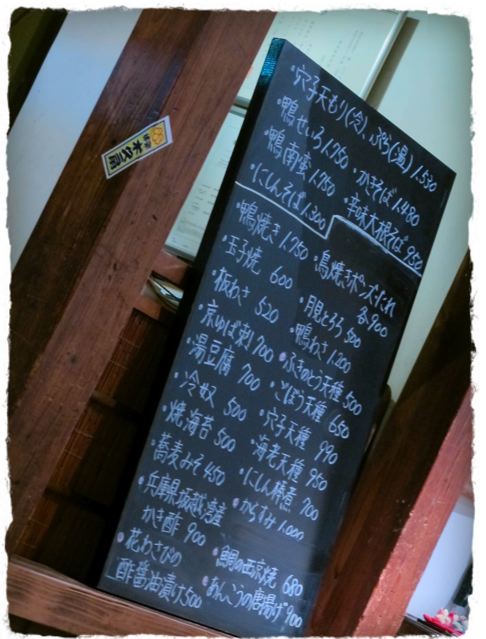 ・穴子天もり(冷)、ぶっかけ(温) 1.530
・鴨せいろ 1.750 ・かきそば 1.480
・鴨南蛮 1.750 ・辛味大根そば 950
・にしんそば 1.300
・鴨焼き 1.750 ・鳥焼き ポンズ たれ
各900
・玉子焼 600 ・月見とろろ 500
・板わさ 520 ・鴨わさ 1.200
・京ゆば刺 700 ・ふきのとう天種 500
・湯豆腐 700 ・ごぼう天種 650
・冷奴 500 ・穴子天種 990
・焼海苔 500 ・海老天種 950
・蕎麦みそ 450 ・にしん棒煮 700
・兵庫県坂越湾産
かき酢 900
・からすみ 1.000
・花わさびの
酢醤油漬け 500
・鯛の西京焼 680
・あんこうの唐揚げ 900